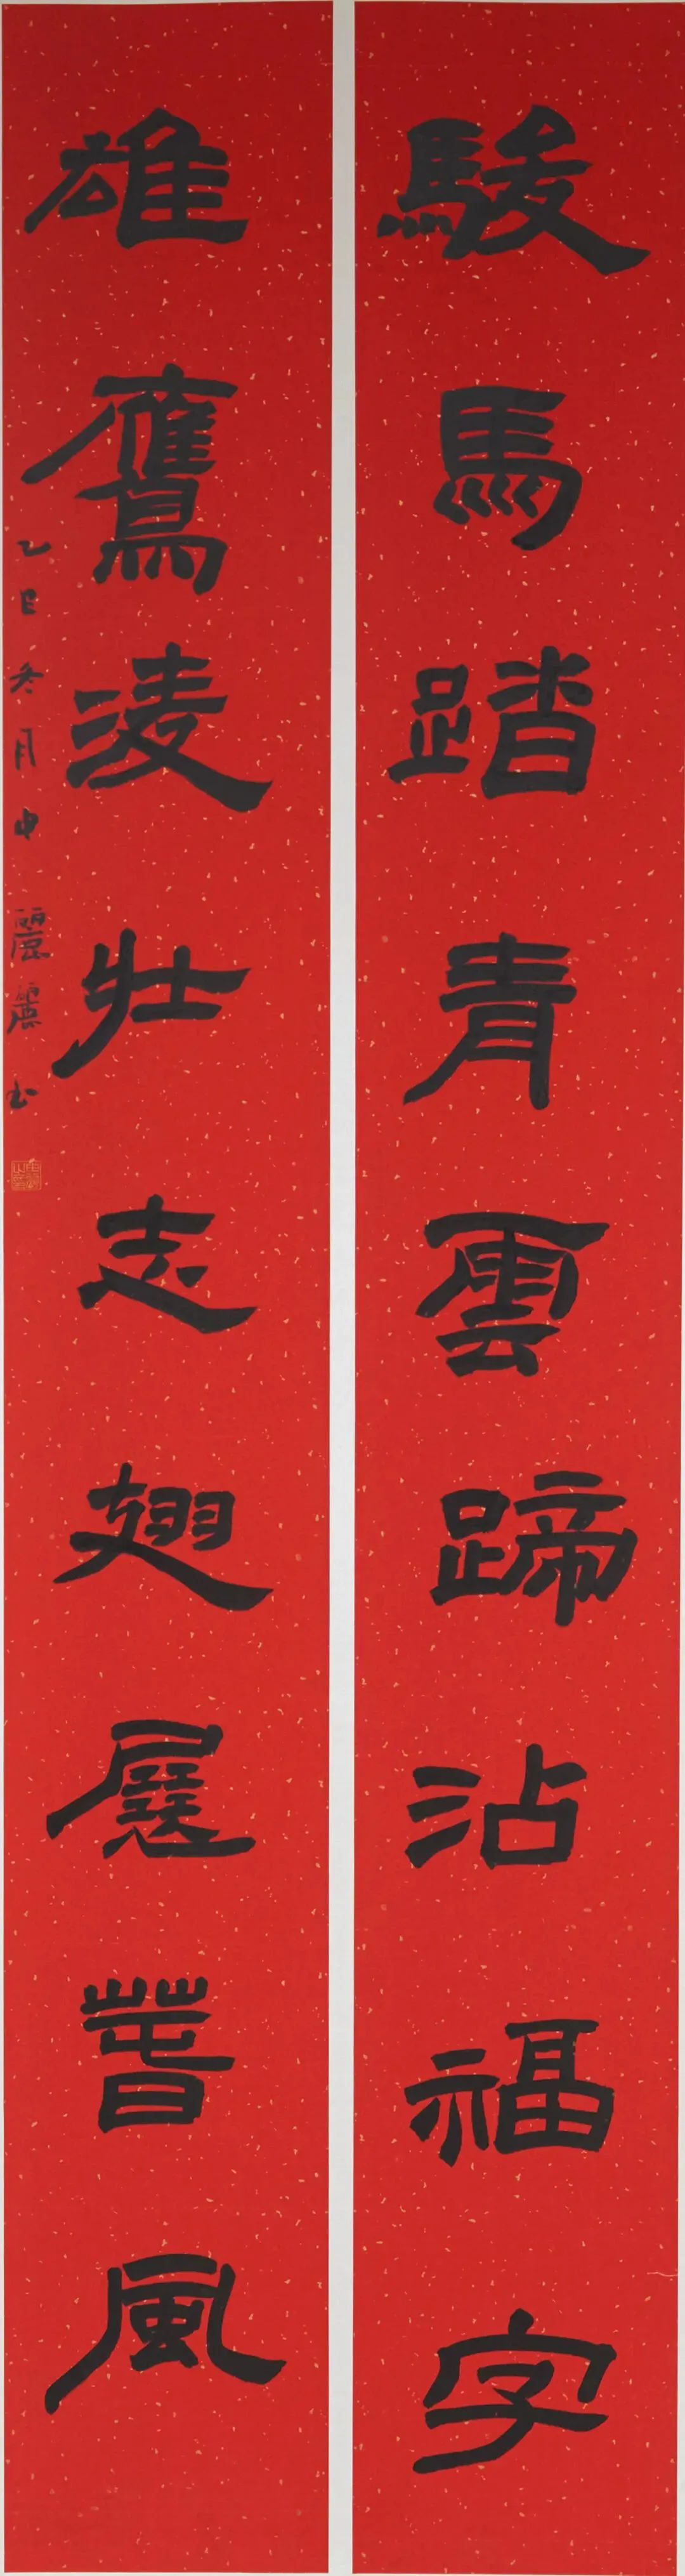 駿馬踏青雲蹄沾福字
雄鷹凌壯志翅展春風
乙巳冬月申麗麗书